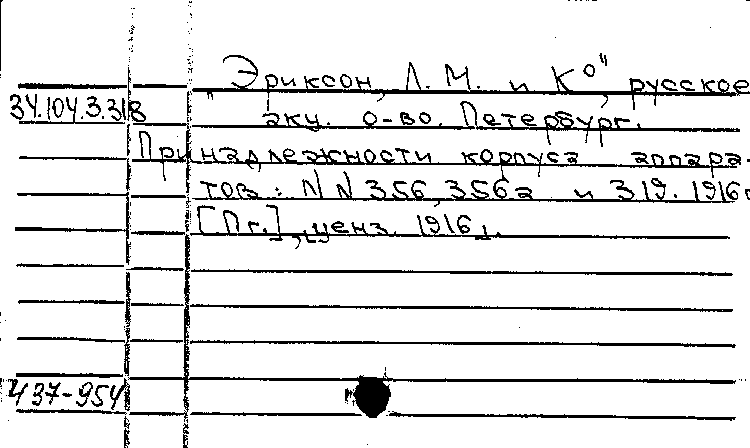 "Эриксон, Л. М. и К°", русское
34.104.3.318 акц. о-во. Петербург.
Принадлежности корпуса аппара-
тов: NN 356, 356а и 319. 1916г
[Пг.], ценз. 1916г.
437-954